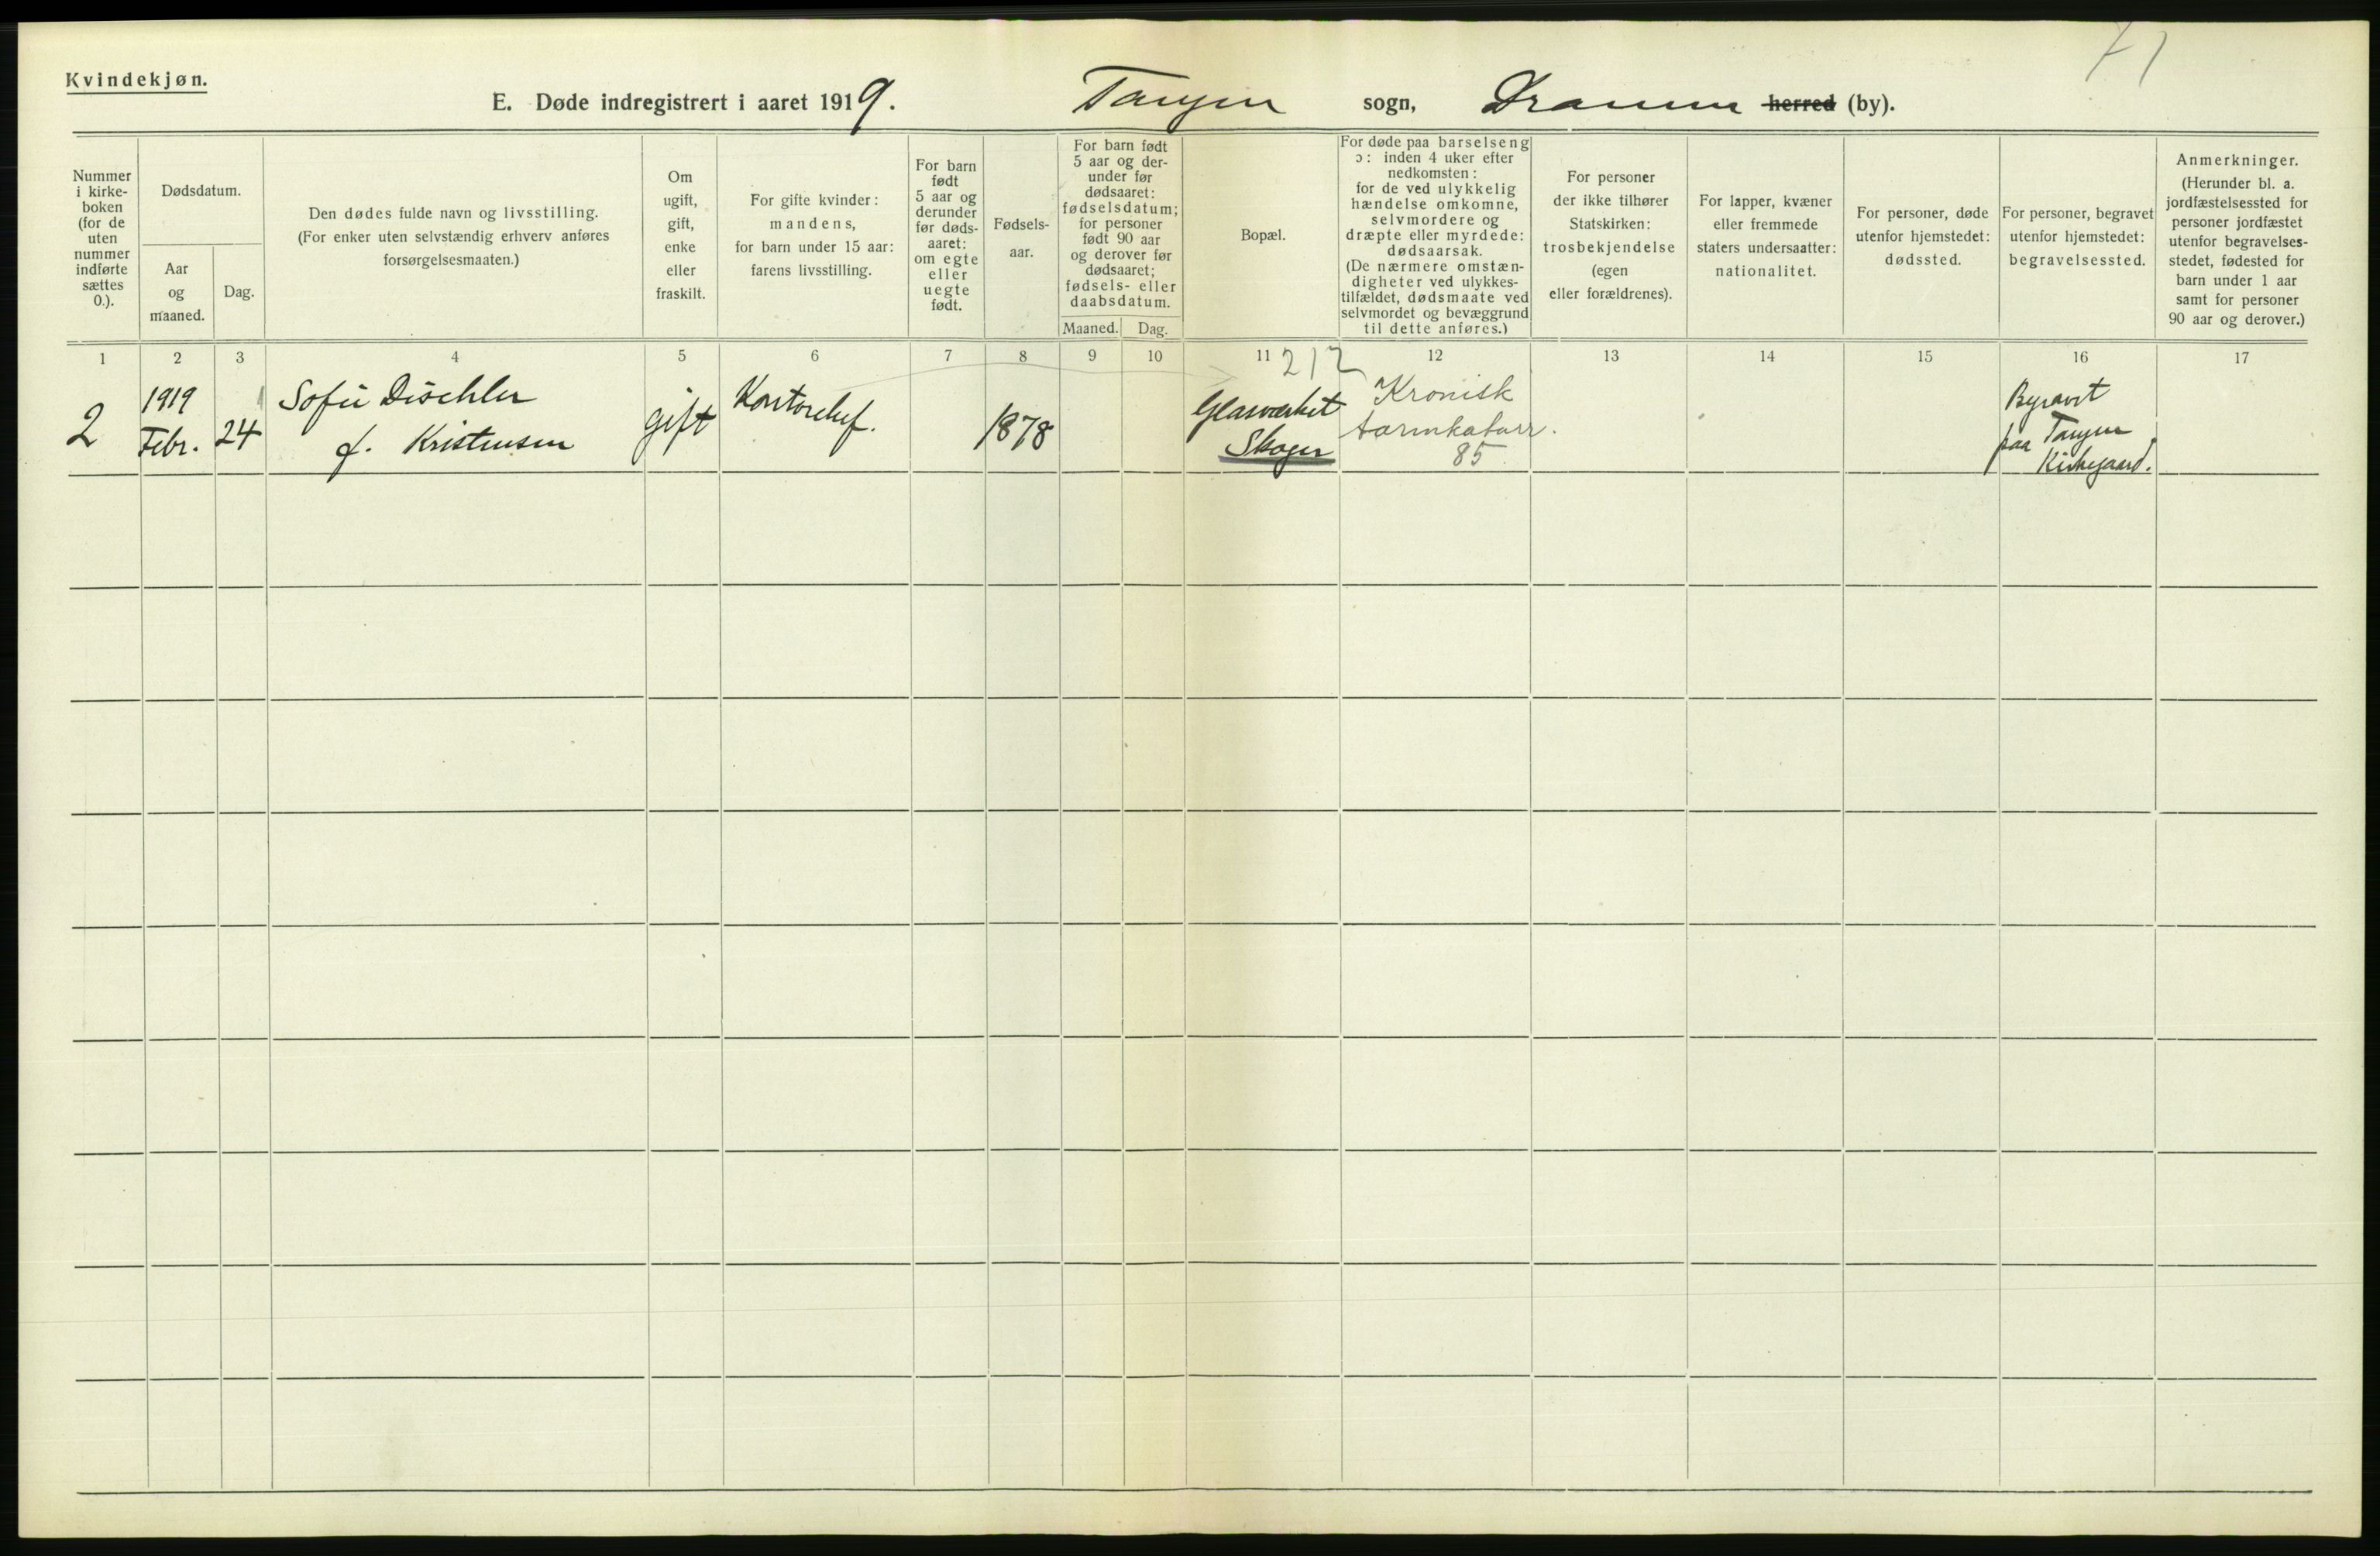 71
Kvindekjøn.
E. Døde indregistrert i aaret 1919. Tangen sogn, Drammen herred (by).
Nummer
i kirke-
boken
(for de
uten
nummer
indførte
sættes
0.).
Dødsdatum.
Aar
og
maaned.
Dag.
Den dødes fulde navn og livsstilling.
(For enker uten selvstændig erhverv anføres
forsørgelsesmaaten.)
Om
ugift,
gift,
enke
eller
fraskilt.
For gifte kvinder:
mandens,
for barn under 15 aar:
farens livsstilling.
For barn
født
5 aar og
derunder
før døds-
aaret:
om egte
eller
uegte
født.
Fødsels-
aar.
For barn født
5 aar og der-
under før
dødsaaret:
fødselsdatum;
for personer
født 90 aar
og derover før
dødsaaret;
fødsels- eller
daabsdatum.
Maaned. Dag.
Bopæl.
For døde paa barselseng
ɔ: inden 4 uker efter
nedkomsten:
for de ved ulykkelig
hændelse omkomne,
selvmordere og
dræpte eller myrdede:
dødsaarsak.
(De nærmere omstæn-
digheter ved ulykkes-
tilfældet, dødsmaate ved
selvmordet og bevæggrund
til dette anføres.)
For personer
der ikke tilhører
Statskirken:
trosbekjendelse
(egen
eller forældrenes).
For lapper, kvæner
eller fremmede
staters undersaatter:
nationalitet.
For personer, døde
utenfor hjemstedet:
dødssted.
For personer, begravet
utenfor hjemstedet:
begravelsessted.
Anmerkninger.
(Herunder bl. a.
jordfæstelsessted for
personer jordfæstet
utenfor begravelses-
stedet, fødested for
barn under 1 aar
samt for personer
90 aar og derover.)
1 2 3 4 5 6 7 8 9 10 11 12 13 14 15 16 17
212
2
1919
Febr.
24
Sofie Dischler
f. Kristensen
gift
Kontorchef.
1878
Glasværket
Skoger
Kronisk
tarmkatarr.
85
paa Tangen
Kirkegaard.